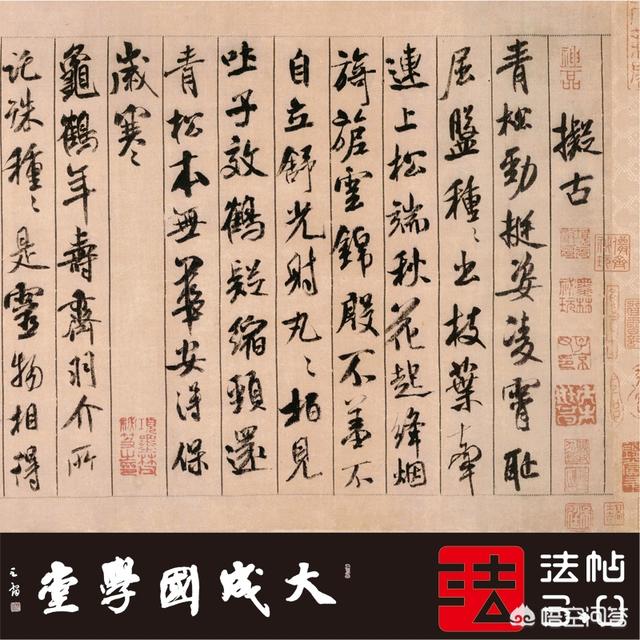 擬古
青松勁挺姿凌霄恥
屈盤種々出枝葉牽
連上松端秋花起絳烟
旖旎雲錦殷不羞不
自立舒光射丸々柏見
吐子效鶴疑縮頸還
青松本無華安得保
歲寒
龜鶴年壽齊羽介所
託殊種々是靈物相得
大成國學堂
法
帖
法
悟空问答